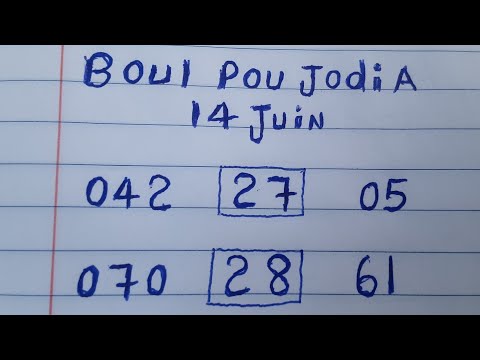 Boul Pou JodiA
14 Juin
042 27 05
070 28 61